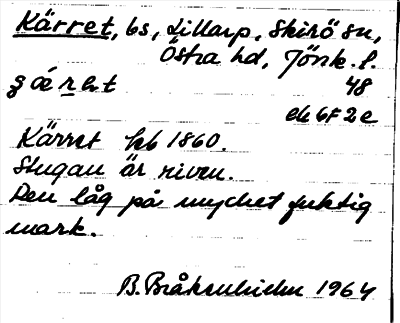 Kärret, bs, Lillarp, Skirö sn,
Östra hd, Jönk. l.
48
ek 6F 2e
Kärret hb 1860.
Stugan är riven.
Den låg på mycket fuktig
mark.
B. Bråkenhielm 1964